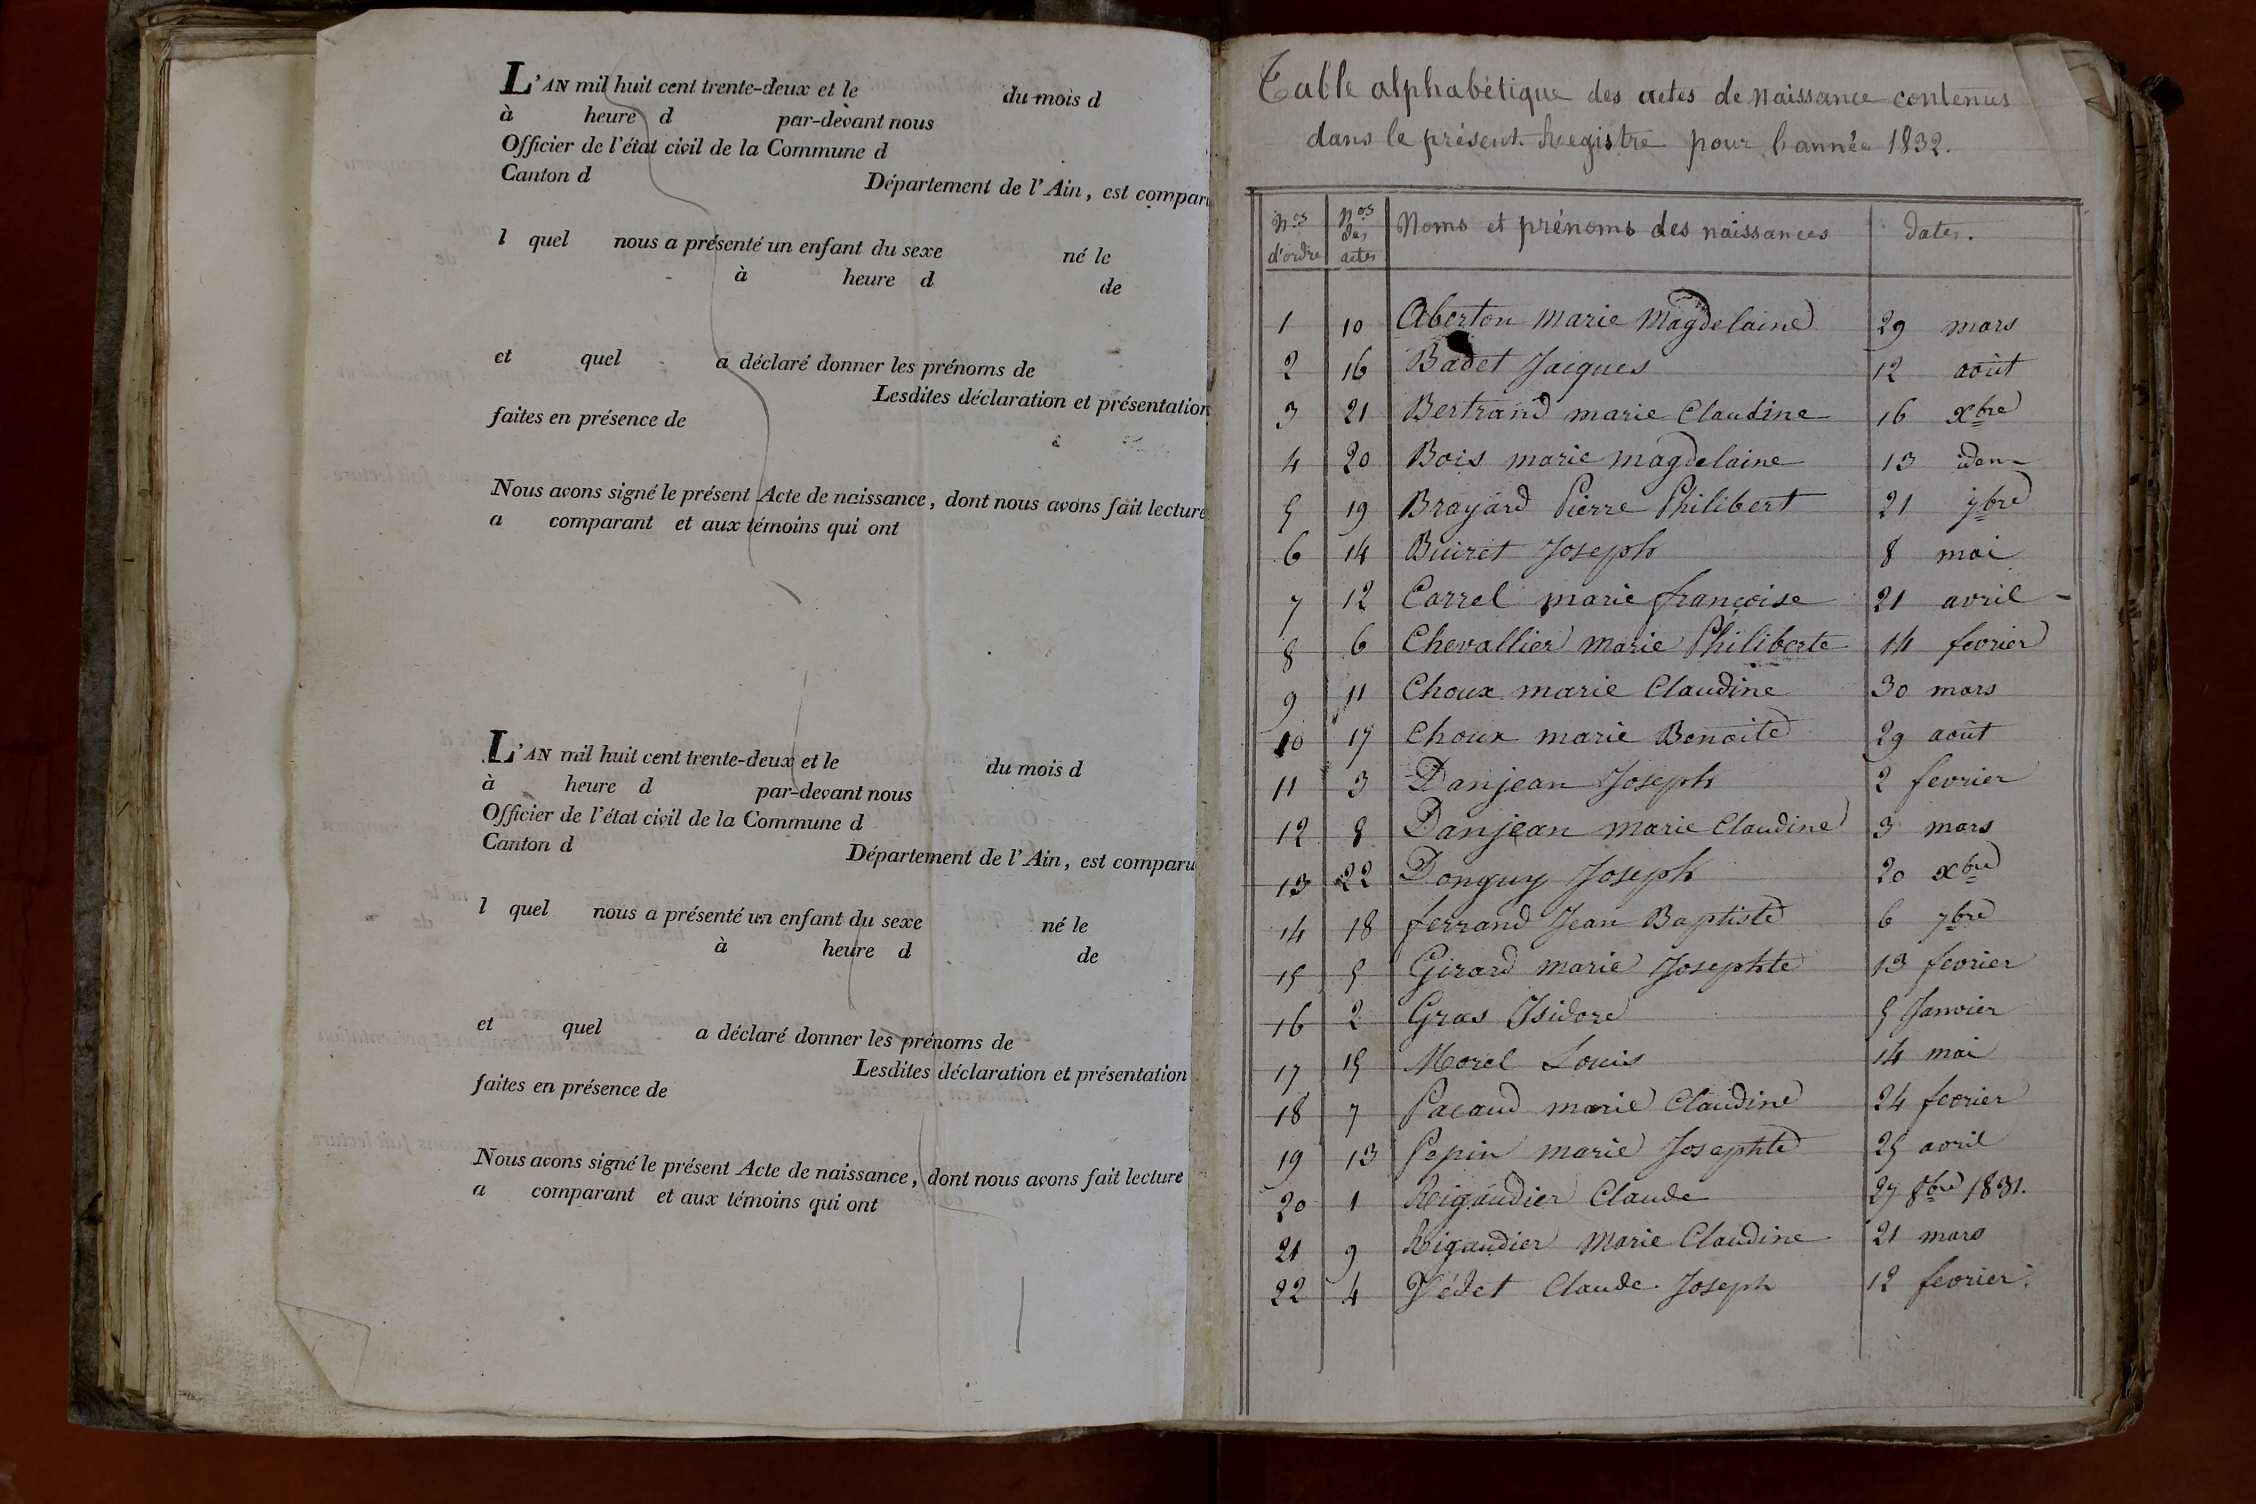 L'AN mil huit cent trente-deux et le du mois d
à heure d par-devant nous
Officier de l'état civil de la Commune d
Canton d Département de l'Ain, est comparu
l quel nous a présenté un enfant du sexe né le
à heure d de
et quel a déclaré donner les prénoms de
Lesdites déclaration et présentation
faites en présence de
Nous avons signé le présent Acte de naissance, dont nous avons fait lecture
a comparant et aux témoins qui ont
L'AN mil huit cent trente-deux et le du mois d
à heure d par-devant nous
Officier de l'état civil de la Commune d
Canton d Département de l'Ain, est comparu
l quel nous a présenté un enfant du sexe né le
à heure d de
et quel a déclaré donner les prénoms de
Lesdites déclaration et présentation
faites en présence de
Nous avons signé le présent Acte de naissance, dont nous avons fait lecture
a comparant et aux témoins qui ont
Table alphabétique des actes de naissance contenus
dans le présent Registre pour l'année 1832.
Nos d'ordre Nos des actes Noms et prénoms des naissances dates.
1 10 Aberton Marie Magdelaine 29 mars
2 16 Badet Jacques 12 août
3 21 Bertrand marie Claudine 16 xbre
4 20 Bois marie magdelaine 13 idem
5 19 Brayard Pierre Philibert 21 9bre
6 14 Buiret Joseph 8 mai
7 12 Carrel marie françoise 21 avril
8 6 Chevallier marie Philiberte 14 fevrier
9 11 Choux marie Claudine 30 mars
10 17 Choux marie Benoite 29 août
11 3 Danjean Joseph 2 fevrier
12 8 Danjean marie Claudine 3 mars
13 22 Donguy Joseph 20 xbre
14 18 ferrand Jean Baptiste 6 7bre
15 5 Girard marie Josephte 13 fevrier
16 2 Gras Isidore 5 Janvier
17 15 Morel Louis 14 mai
18 7 Pacaud marie Claudine 24 fevrier
19 13 Pepin marie Josephte 25 avril
20 1 Rigaudier Claude 27 8bre 1831.
21 9 Rigaudier Marie Claudine 21 mars
22 4 Védet Claude Joseph 12 fevrier.